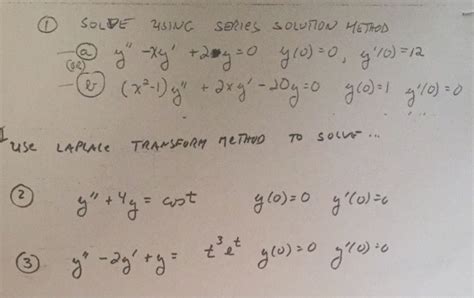 ① SOLVE USING SERIES SOLUTION METHOD
- ⓐ y'' - xy' + 2y = 0 y(0) = 0, y'(0) = 12
(OR)
- ⓑ (x² - 1) y'' + 2xy' - 20y = 0 y(0) = 1 y'(0) = 0
USE LAPLACE TRANSFORM METHOD TO SOLVE ...
② y'' + 4y = cos t y(0) = 0 y'(0) = 0
③ y'' - 2y' + y = t³eᵗ y(0) = 0 y'(0) = 0